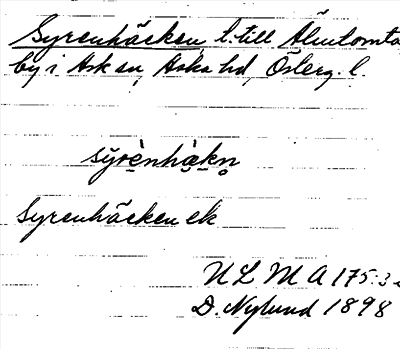 Syrenhäcken l. till Älmtomta
by i Ask sn, Aska hd, Österg. l.
syrènhàkn
Syrenhäcken ek
ULMA 175:3
D. Nylund 1898